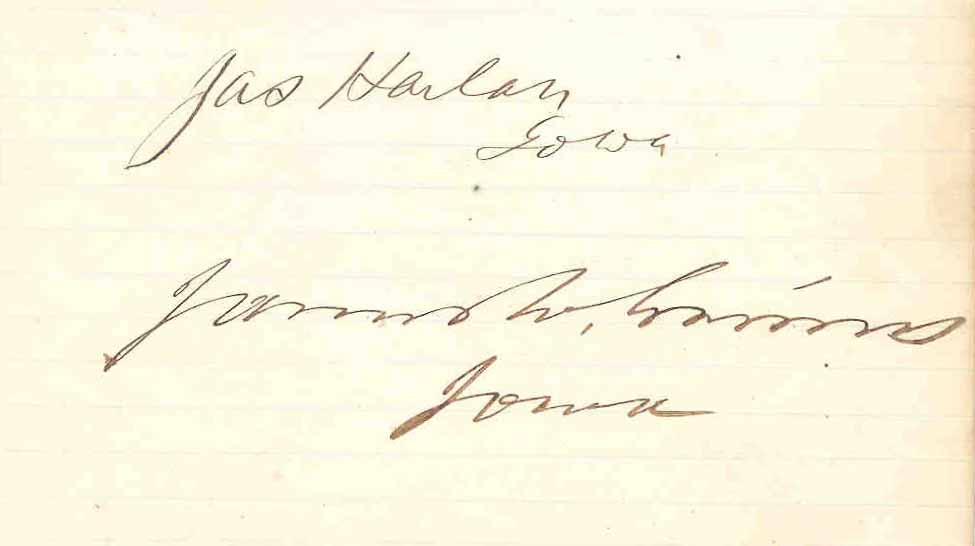 Jas Harlan
Iowa
James W. Grimes
Iowa